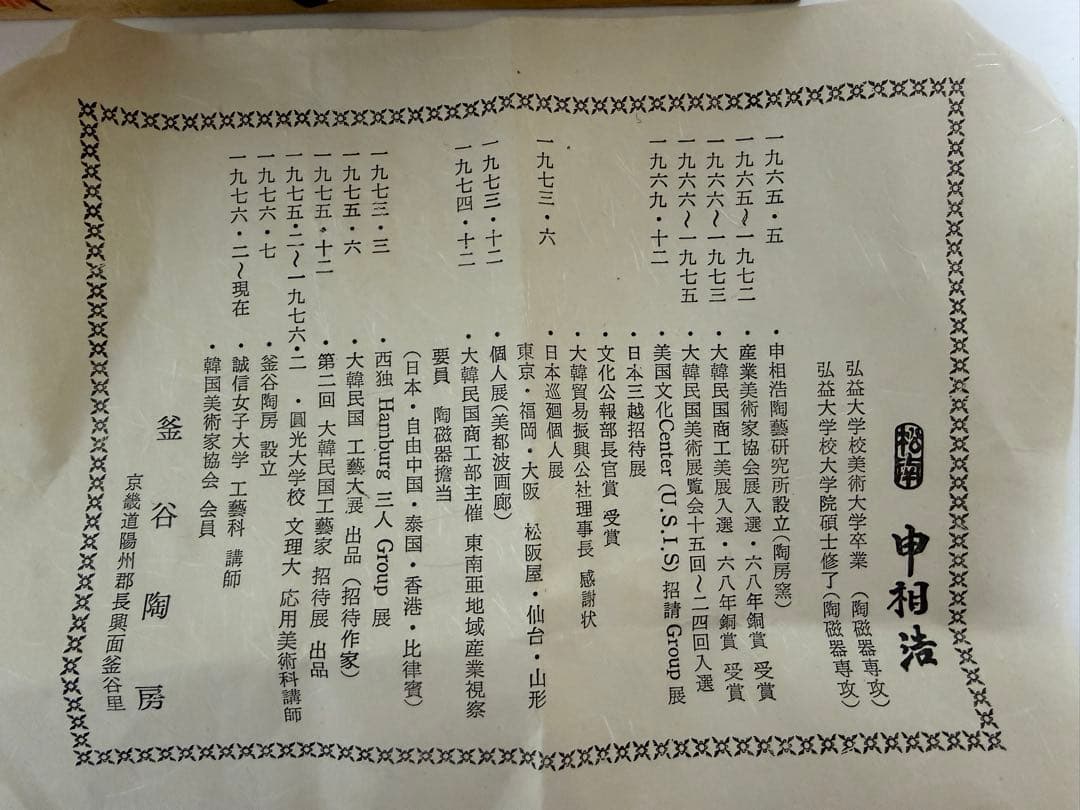 松南
申相浩
弘益大学校美術大学卒業 (陶磁器専攻)
弘益大学校大学院碩士修了(陶磁器専攻)
一九六五・五 ・申相浩陶藝研究所設立(陶房窯)
一九六五〜一九七二 ・産業美術家協会展入選・六八年銅賞 受賞
一九六六〜一九七三 ・大韓民国商工美展入選・六八年銅賞 受賞
一九六六〜一九七五 ・大韓民国美術展覧会十五回〜二四回入選
一九六九・十二 ・美国文化Center (U.S.I.S) 招請 Group 展
・日本三越招待展
・文化公報部長官賞 受賞
・大韓貿易振興公社理事長 感謝状
一九七三・六 ・日本巡廻個人展
東京・福岡・大阪 松阪屋・仙台・山形
一九七三・十二 ・個人展(美都波画廊)
一九七四・十二 ・大韓民国商工部主催 東南亜地域産業視察
要員 陶磁器擔当
(日本・自由中国・泰国・香港・比律賓)
一九七三・三 ・西独 Hamburg 三人 Group 展
一九七五・六 ・大韓民国 工藝大展 出品(招待作家)
一九七五・十二 ・第二回 大韓民国工藝家 招待展 出品
一九七五・二〜一九七六・二 ・圓光大学校 文理大 応用美術科講師
一九七六・七 ・釜谷陶房 設立
一九七六・二〜現在 ・誠信女子大学 工藝科 講師
・韓国美術家協会 会員
釜谷陶房
京畿道陽州郡長興面釜谷里